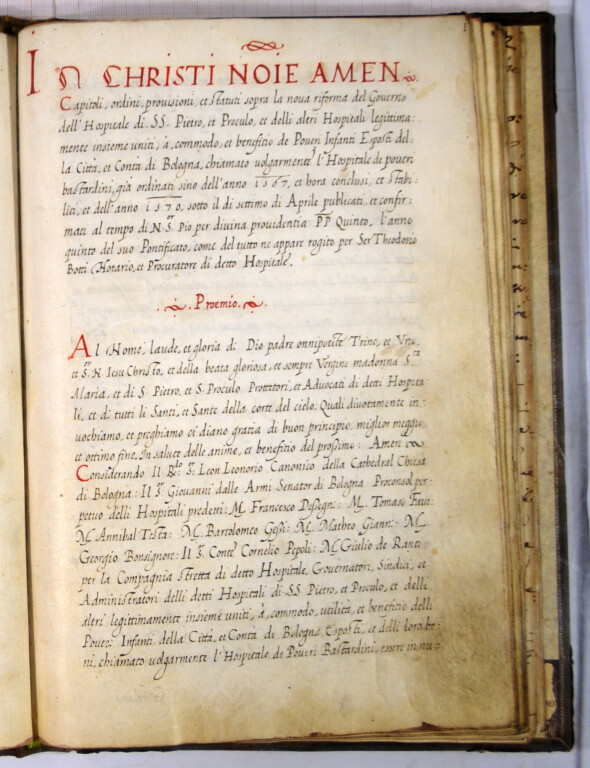 IN CHRISTI NOIE AMEN.
Capitoli, ordini, provisioni, et statuti sopra la nova riforma del Governo
dell'Hospitale di SS. Pietro, et Proculo, et delli altri Hospitali legittima-
mente insieme uniti, à, commodo, et beneficio de Poveri Infanti Esposti del-
la Città, et Contà di Bologna, chiamato volgarmente l'Hospitale de poveri
bastardini, già ordinati sino dell'anno 1567, et hora conclusi, et stabi-
liti, et dell'anno 1570, sotto il di settimo di Aprile publicati, et confir-
mati al tempo di N. Sor Pio per divina providentia PP Quinto, l'anno
quinto del suo Pontificato, come del tutto ne appare rogito per Ser Theodosio
Botti Notario, et Procuratore di detto Hospitale.
Proemio.
Al Nome, laude, et gloria di Dio padre onnipotēte Trino, et Uno,
et Sor N. Iesu Christo, et della beata gloriosa, et sempre Vergine madonna Sta
Maria, et di S. Pietro, et S. Proculo Protettori, et Advocati di detti Hospita-
li, et di tutti li Santi, et Sante della corte del cielo, Quali divotamente in-
vochiamo, et preghiamo ci diano gratia di buon principio, miglior meggio,
et ottimo fine, In salute delle anime, et beneficio del prossimo: Amen
Considerando Il Rdo Sr Leon Leonorio Canonico della Cathedral Chiesa
di Bologna: Il Sr Giovanni dalle Armi Senator di Bologna Proconsol per
petuo delli Hospitali predetti: M. Francesco M. Tomaso
M. Annibal Testa: M. Bartolomeo Gessi: M. Mattheo M.
Georgio Bonsignore: Il Sr Conte Cornelio Pepoli: M. Giulio de Ranci
per la Compagnia stretta di detto Hospitale, Governatori, Sindici, et
Administratori delli detti Hospitali di SS. Pietro, et Proculo, et delli
altri legittimamente insieme uniti, à, commodo, utilità, et beneficio delli
Poveri Infanti della Città, et Contà di Bologna Esposti, et delli loro be-
ni, chiamato volgarmente l'Hospitale de Poveri Bastardini, essere in nu-